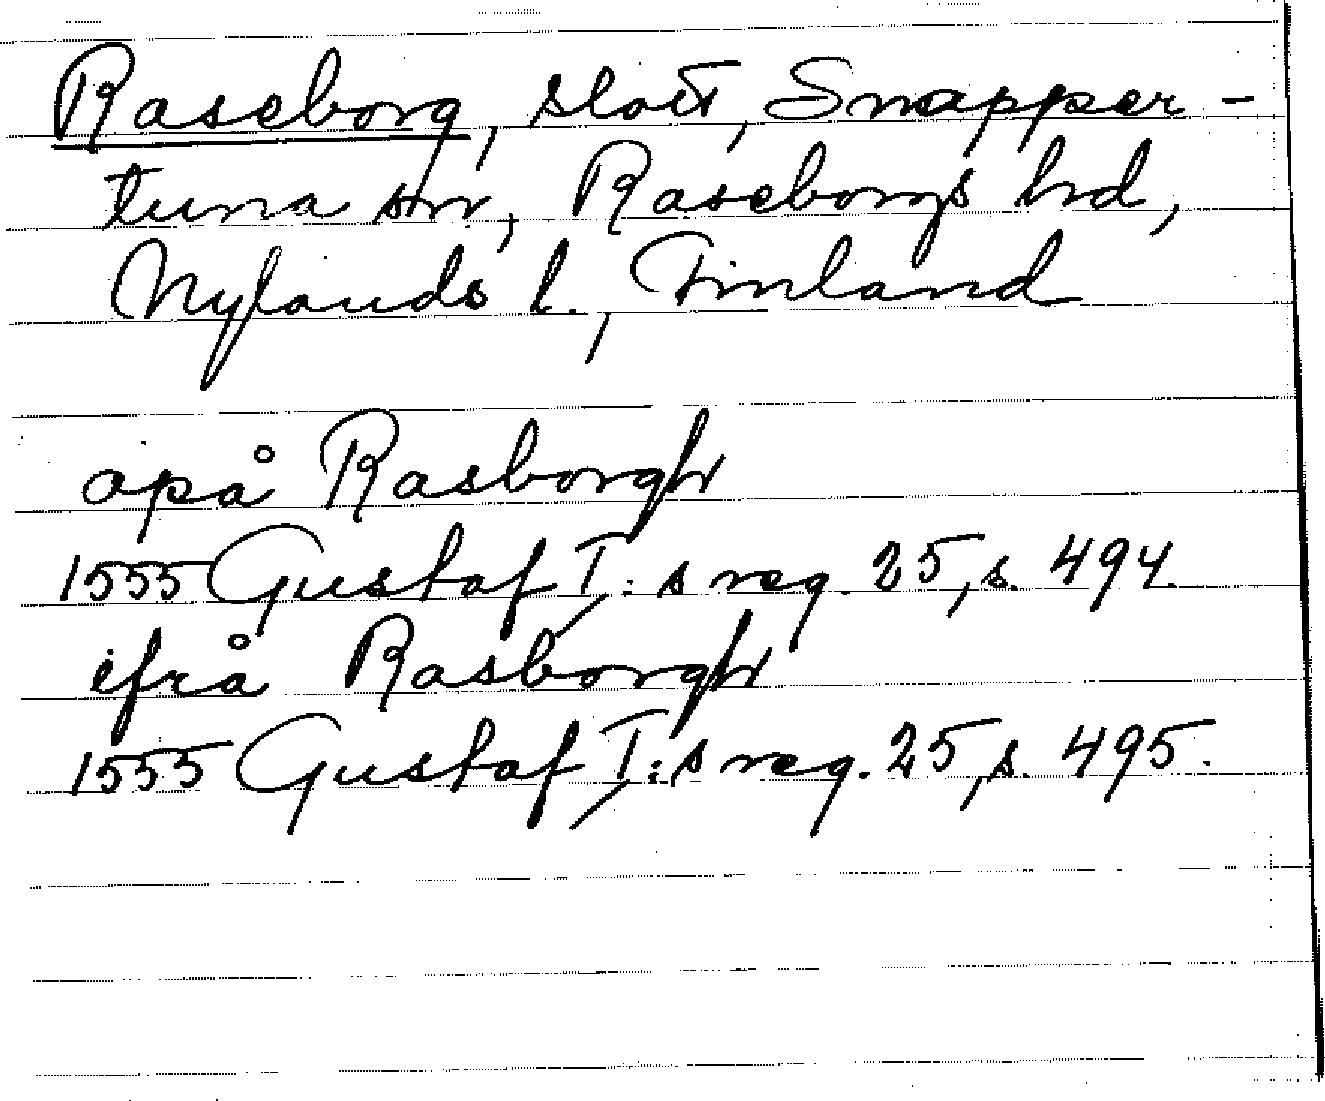 Raseborg, slott, Snapper-
tuna sn, Raseborgs hd,
Nylands l., Finland
opå Rasborgh
1555 Gustaf I:s reg. 25, s. 494.
ifrå Rasborgh
1555 Gustaf I:s reg. 25, s. 495.